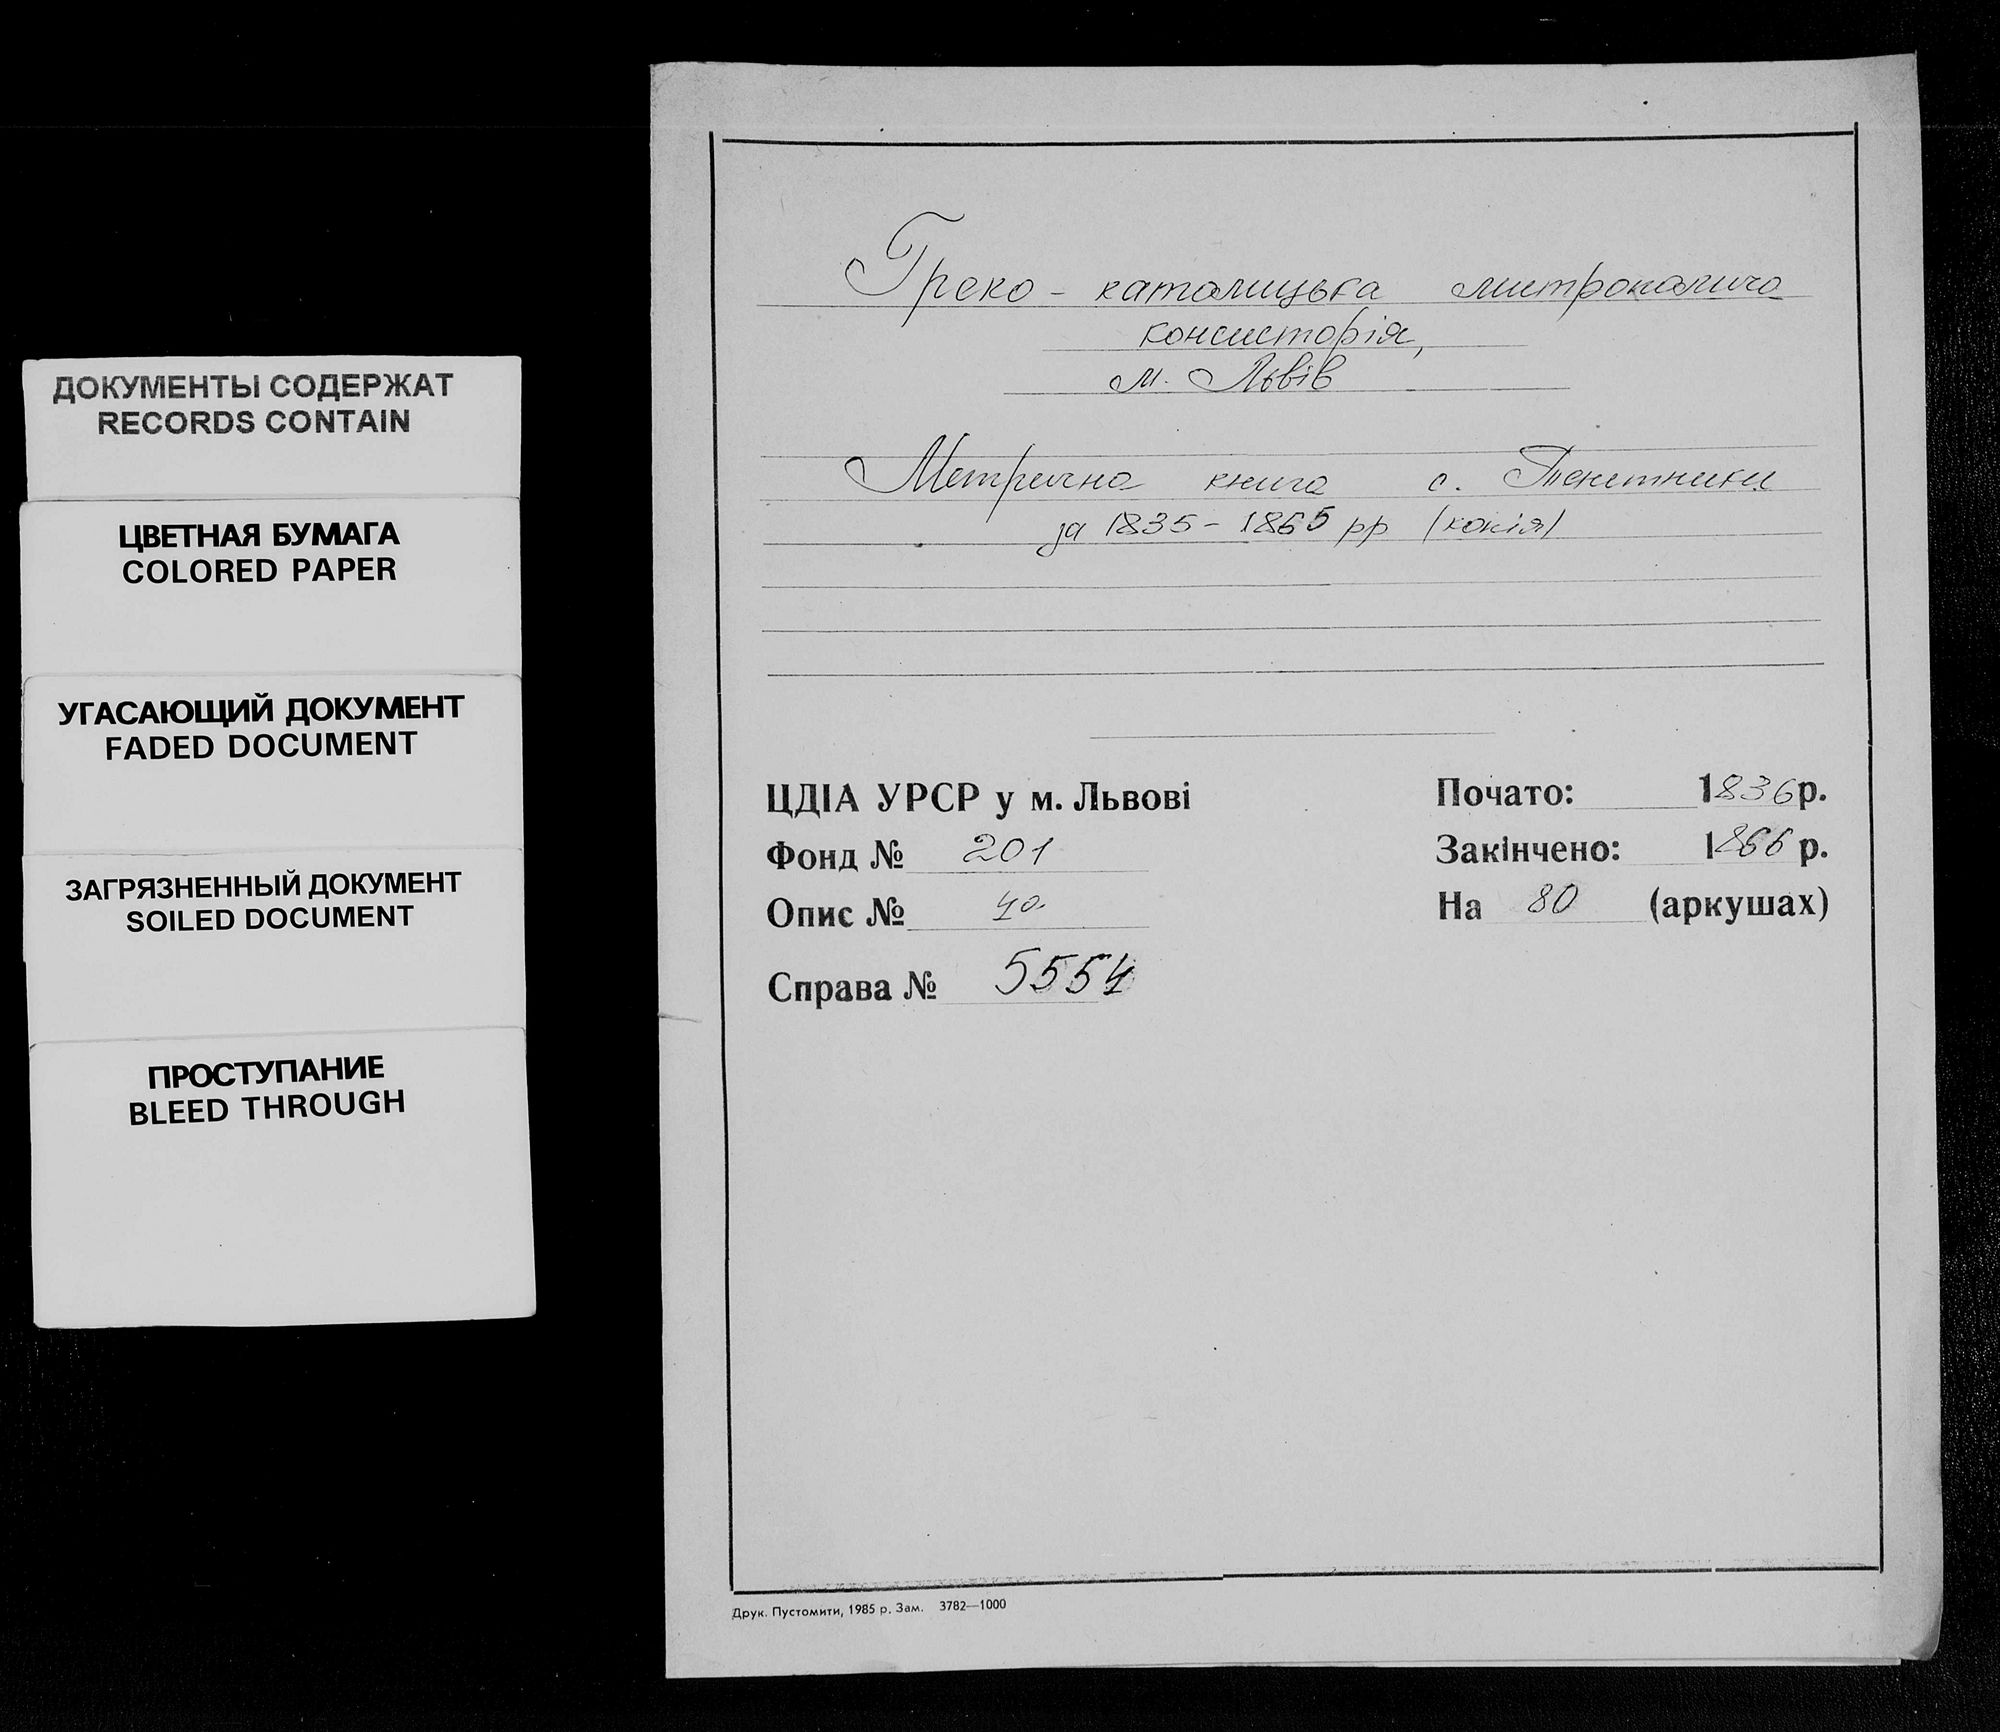 ДОКУМЕНТЫ СОДЕРЖАТ
RECORDS CONTAIN
ЦВЕТНАЯ БУМАГА
COLORED PAPER
УГАСАЮЩИЙ ДОКУМЕНТ
FADED DOCUMENT
ЗАГРЯЗНЕННЫЙ ДОКУМЕНТ
SOILED DOCUMENT
ПРОСТУПАНИЕ
BLEED THROUGH
Греко-католицька митрополича
консисторія,
м. Львів
Метрична книга с. Тенетники
за 1835-1865 рр (копія)
ЦДІА УРСР у м. Львові
Фонд № 201
Опис № 4а
Справа № 5554
Почато: 1836 р.
Закінчено: 1866 р.
На 80 (аркушах)
Друк. Пустомити, 1985 р. Зам. 3782—1000